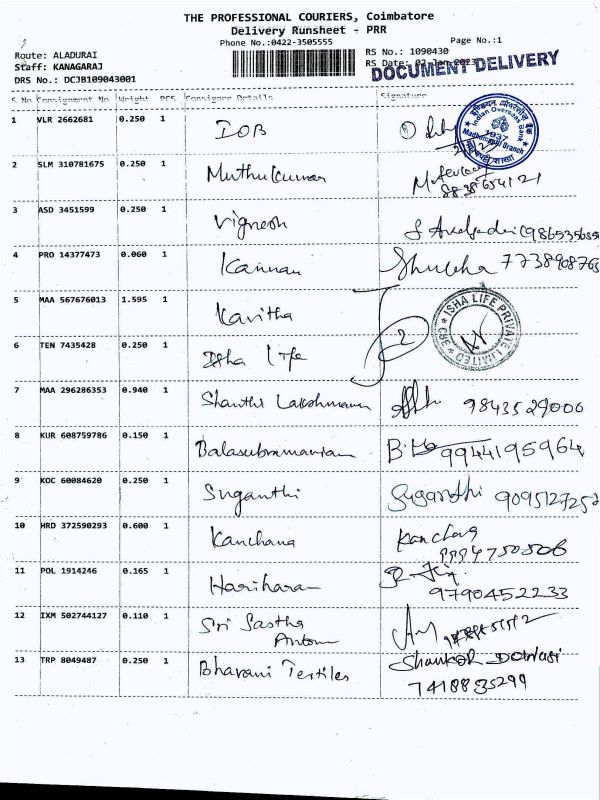 THE PROFESSIONAL COURIERS, Coimbatore
Delivery Runsheet - PRR
Phone No.:0422-3505555 Page No.:1
Route: ALADURAI RS No.: 1090430
Staff: KANAGARAJ RS Date: 02-Jan-2023
DOCUMENT DELIVERY
DRS No.: DCJB109043001
S.No Consignment No Weight PCS Consignee Details Signature
1 VLR 2662681 0.250 1 IOB
Indian Overseas Bank
1937
2 SLM 310781675 0.250 1 Muthukumar
3 ASD 3451599 0.250 1 Vignesh
4 PRO 14377473 0.060 1 Kannan 7738908765
5 MAA 567676013 1.595 1 Kavitha
ISHA LIFE PRIVATE LIMITED
CBE
6 TEN 7435428 0.250 1 Isha Life 2
7 MAA 296286353 0.940 1 Shanthi Lakshmanan 9843529000
8 KUR 608759786 0.150 1 Balasubramaniam 9944195964
9 KOC 60084620 0.250 1 Suganthi Suganthi 9095127252
10 HRD 372590293 0.600 1 Kanchana Kanchana
11 POL 1914246 0.165 1 Hariharan
9790452233
12 IXM 502744127 0.110 1 Sri Sastha
13 TRP 8049487 0.250 1 Bharani Textiles Shankar
7418835299